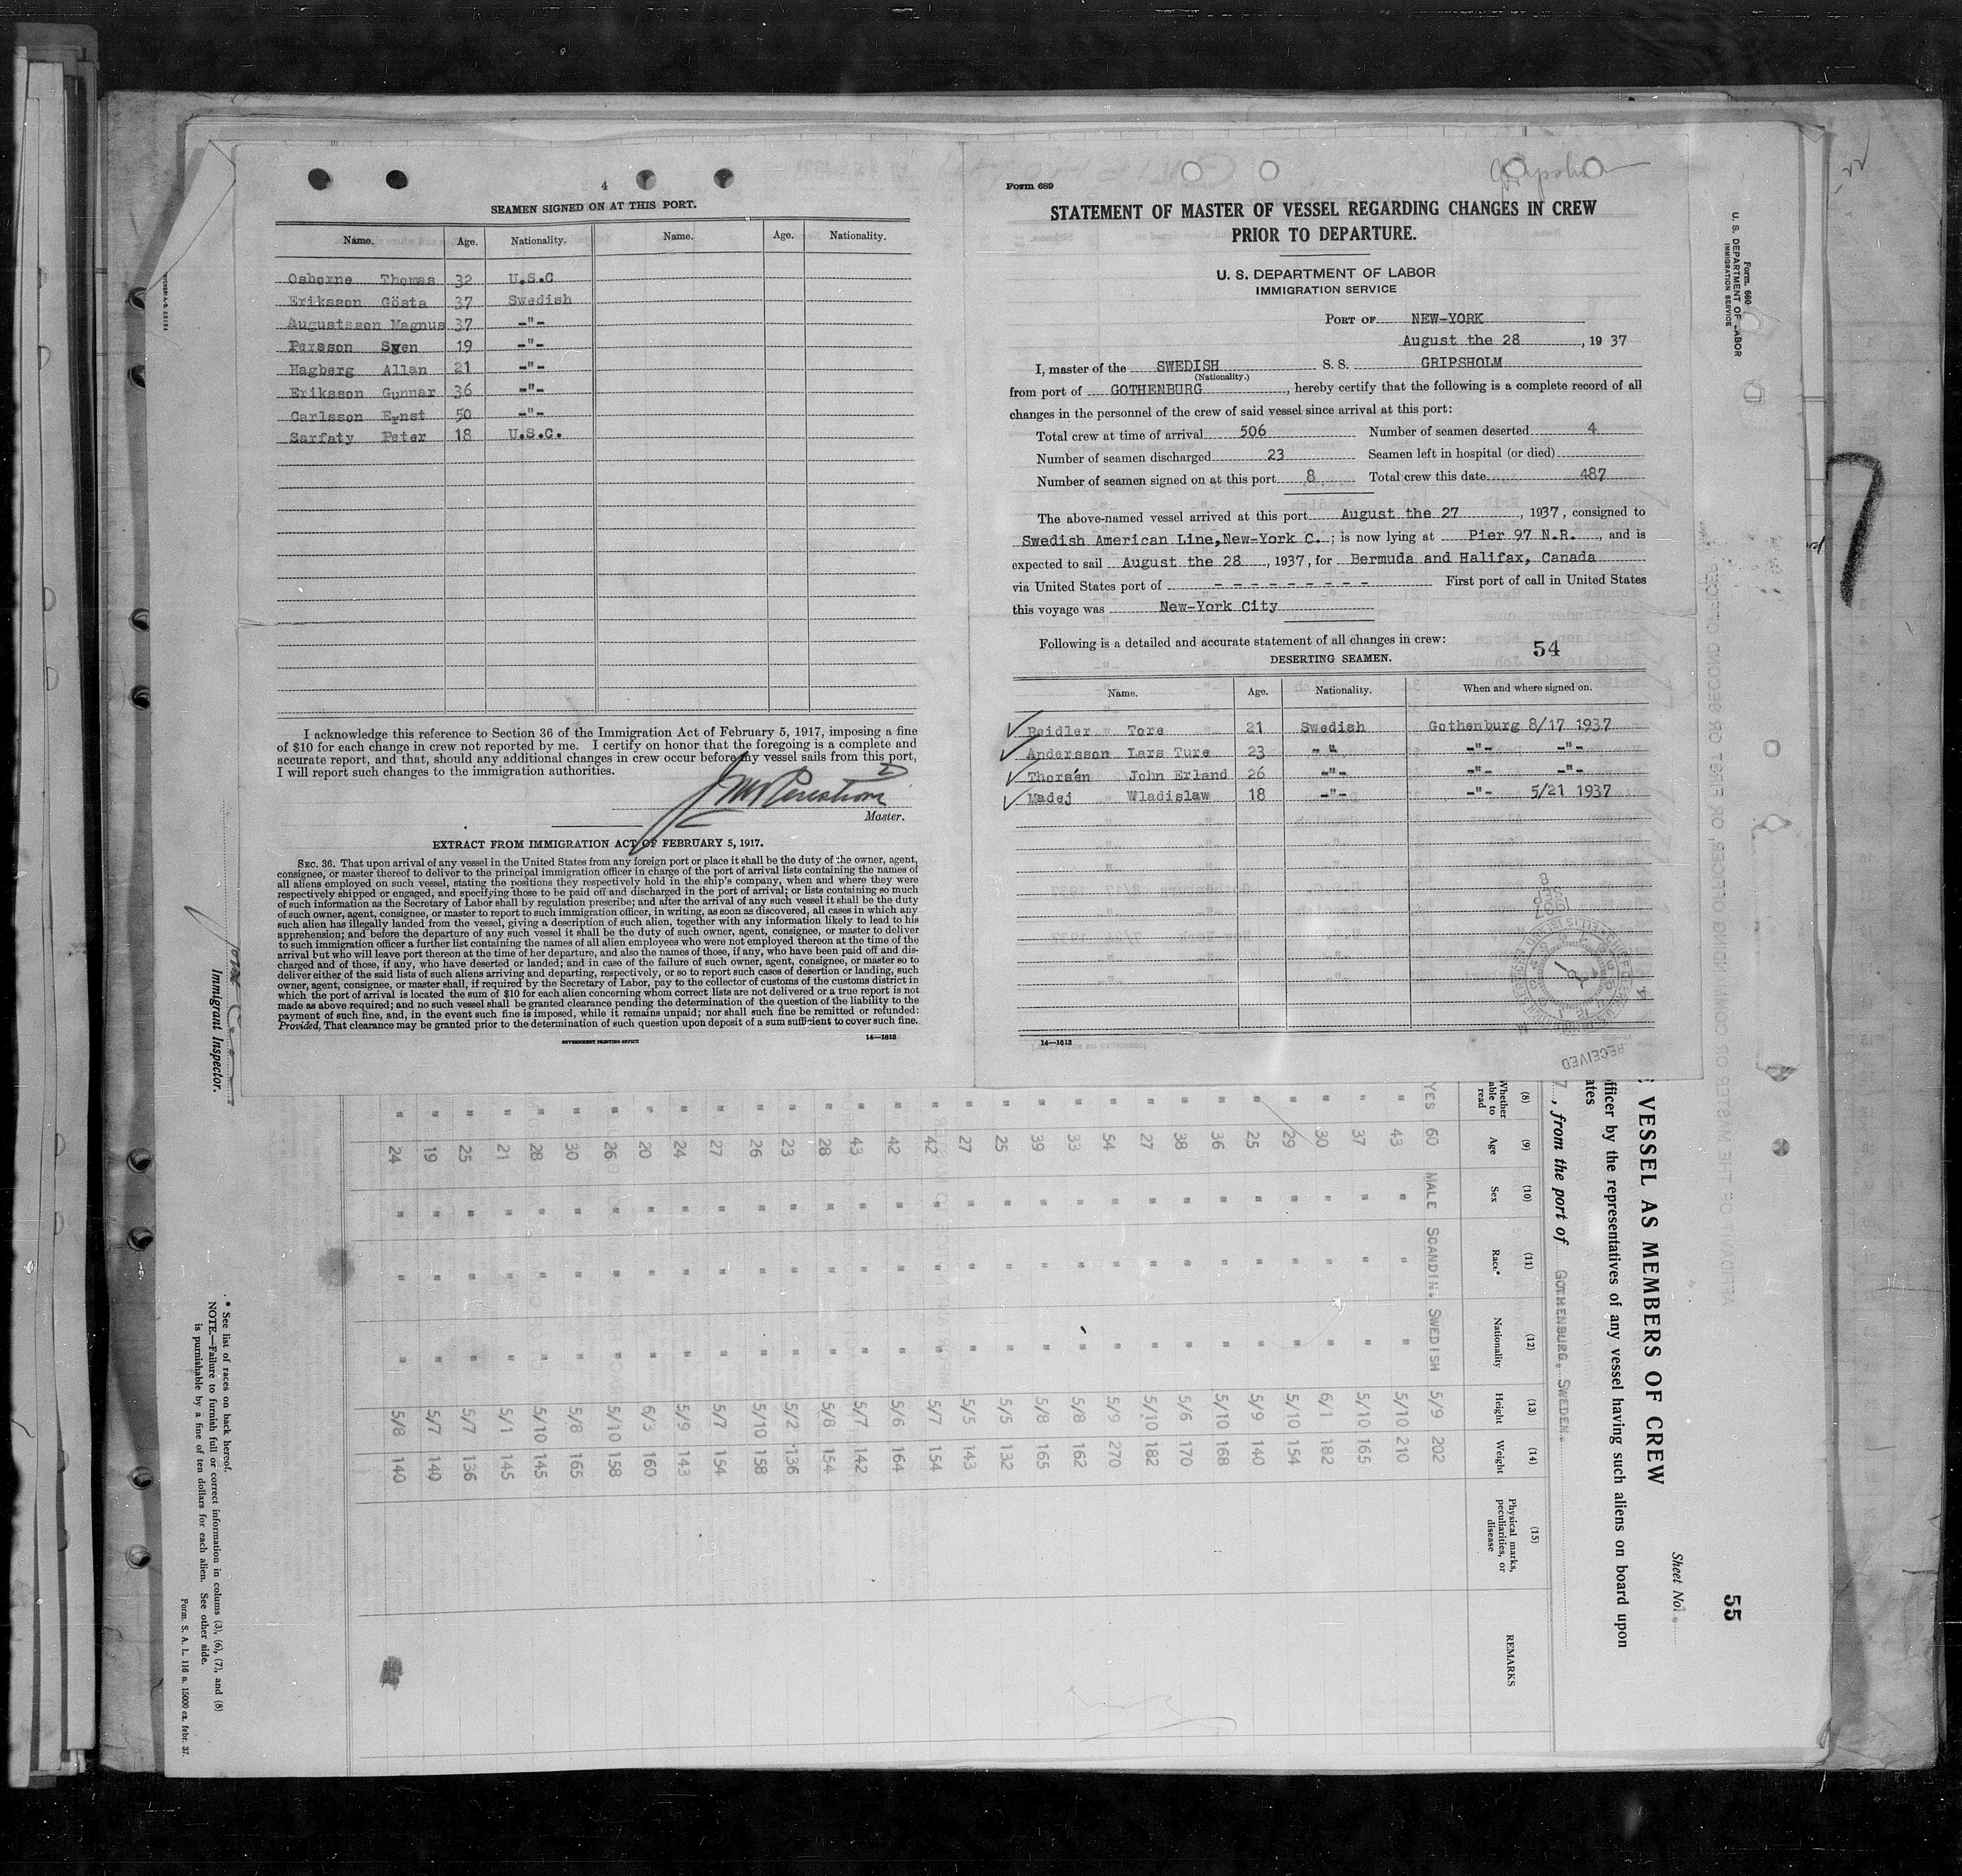 4
SEAMEN SIGNED ON AT THIS PORT.
Name. Age. Nationality. Name. Age. Nationality.
Osborne Thomas 32 U.S.C
Eriksson Gösta 37 Swedish
Augustsson Magnus 37 -"-
Persson Sven 19 -"-
Hagberg Allan 21 -"-
Eriksson Gunnar 36 -"-
Carlsson Ernst 50 -"-
Sarfaty Peter 18 U.S.C.
I acknowledge this reference to Section 36 of the Immigration Act of February 5, 1917, imposing a fine
of $10 for each change in crew not reported by me. I certify on honor that the foregoing is a complete and
accurate report, and that, should any additional changes in crew occur before my vessel sails from this port,
I will report such changes to the immigration authorities.
Master.
EXTRACT FROM IMMIGRATION ACT OF FEBRUARY 5, 1917.
SEC. 36. That upon arrival of any vessel in the United States from any foreign port or place it shall be the duty of the owner, agent,
consignee, or master thereof to deliver to the principal immigration officer in charge of the port of arrival lists containing the names of
all aliens employed on such vessel, stating the positions they respectively hold in the ship's company, when and where they were
respectively shipped or engaged, and specifying those to be paid off and discharged in the port of arrival; or lists containing so much
of such information as the Secretary of Labor shall by regulation prescribe; and after the arrival of any such vessel it shall be the duty
of such owner, agent, consignee, or master to report to such immigration officer, in writing, as soon as discovered, all cases in which any
such alien has illegally landed from the vessel, giving a description of such alien, together with any information likely to lead to his
apprehension; and before the departure of any such vessel it shall be the duty of such owner, agent, consignee, or master to deliver
to such immigration officer a further list containing the names of all alien employees who were not employed thereon at the time of the
arrival but who will leave port thereon at the time of her departure, and also the names of those, if any, who have been paid off and dis-
charged and of those, if any, who have deserted or landed; and in case of the failure of such owner, agent, consignee, or master so to
deliver either of the said lists of such aliens arriving and departing, respectively, or so to report such cases of desertion or landing, such
owner, agent, consignee, or master shall, if required by the Secretary of Labor, pay to the collector of customs of the customs district in
which the port of arrival is located the sum of $10 for each alien concerning whom correct lists are not delivered or a true report is not
made as above required; and no such vessel shall be granted clearance pending the determination of the question of the liability to the
payment of such fine, and, in the event such fine is imposed, while it remains unpaid; nor shall such fine be remitted or refunded:
Provided, That clearance may be granted prior to the determination of such question upon deposit of a sum sufficient to cover such fine.
GOVERNMENT PRINTING OFFICE 14—1613
Form 689
Gripsholm
STATEMENT OF MASTER OF VESSEL REGARDING CHANGES IN CREW
PRIOR TO DEPARTURE.
U. S. DEPARTMENT OF LABOR
IMMIGRATION SERVICE
PORT OF NEW-YORK
August the 28, 1937
I, master of the SWEDISH S. S. GRIPSHOLM
(Nationality.)
from port of GOTHENBURG, hereby certify that the following is a complete record of all
changes in the personnel of the crew of said vessel since arrival at this port:
Total crew at time of arrival 506 Number of seamen deserted 4
Number of seamen discharged 23 Seamen left in hospital (or died)
Number of seamen signed on at this port 8 Total crew this date 487
The above-named vessel arrived at this port August the 27, 1937, consigned to
Swedish American Line,New-York C. ; is now lying at Pier 97 N.R. , and is
expected to sail August the 28, 1937, for Bermuda and Halifax, Canada
via United States port of - - - - - - - - - First port of call in United States
this voyage was New-York City
Following is a detailed and accurate statement of all changes in crew: 54
DESERTING SEAMEN.
Name. Age. Nationality. When and where signed on.
Reidler Tore 21 Swedish Gothenburg 8/17 1937
Andersson Lars Ture 23 -"- -"- -"-
Thorsén John Erland 26 -"- -"- -"-
Madej Wladislaw 18 -"- -"- 5/21 1937
14—1613
RECEIVED
Form 689
U. S. DEPARTMENT OF LABOR
IMMIGRATION SERVICE
7
55
Sheet No1.
VESSEL AS MEMBERS OF CREW
officer by the representatives of any vessel having such aliens on board upon
7, from the port of GOTHENBURG, SWEDEN.
(8) (9) (10) (11) (12) (13) (14) (15)
Whether able to read Age Sex Race* Nationality Height Weight Physical marks, peculiarities, or disease REMARKS
YES 60 MALE SCANDIN. SWEDISH 5/9 202
" 43 " " " 5/10 210
" 37 " " " 5/10 165
" 30 " " " 6/1 182
" 29 " " " 5/10 154
" 25 " " " 5/9 140
" 36 " " " 5/10 168
" 38 " " " 5/6 170
" 27 " " " 5/10 182
" 54 " " " 5/9 270
" 33 " " " 5/8 162
" 39 " " " 5/8 165
" 25 " " " 5/5 132
" 27 " " " 5/5 143
" 42 " " " 5/7 154
" 42 " " " 5/6 164
" 43 " " " 5/7 142
" 28 " " " 5/8 154
" 23 " " " 5/2 136
" 26 " " " 5/10 158
" 27 " " " 5/7 154
" 24 " " " 5/9 143
" 20 " " " 6/3 160
" 26 " " " 5/10 158
" 30 " " " 5/8 165
" 28 " " " 5/10 145
" 21 " " " 5/1 145
" 25 " " " 5/7 136
" 19 " " " 5/7 140
" 24 " " " 5/8 140
Immigrant Inspector.
* See list of races on back hereof.
NOTE.—Failure to furnish full or correct information in colums (3), (6), (7), and (8)
is punishable by a fine of ten dollars for each alien. See other side.
Form. S. A. L. 116 n. 15000 ex. febr. 37.